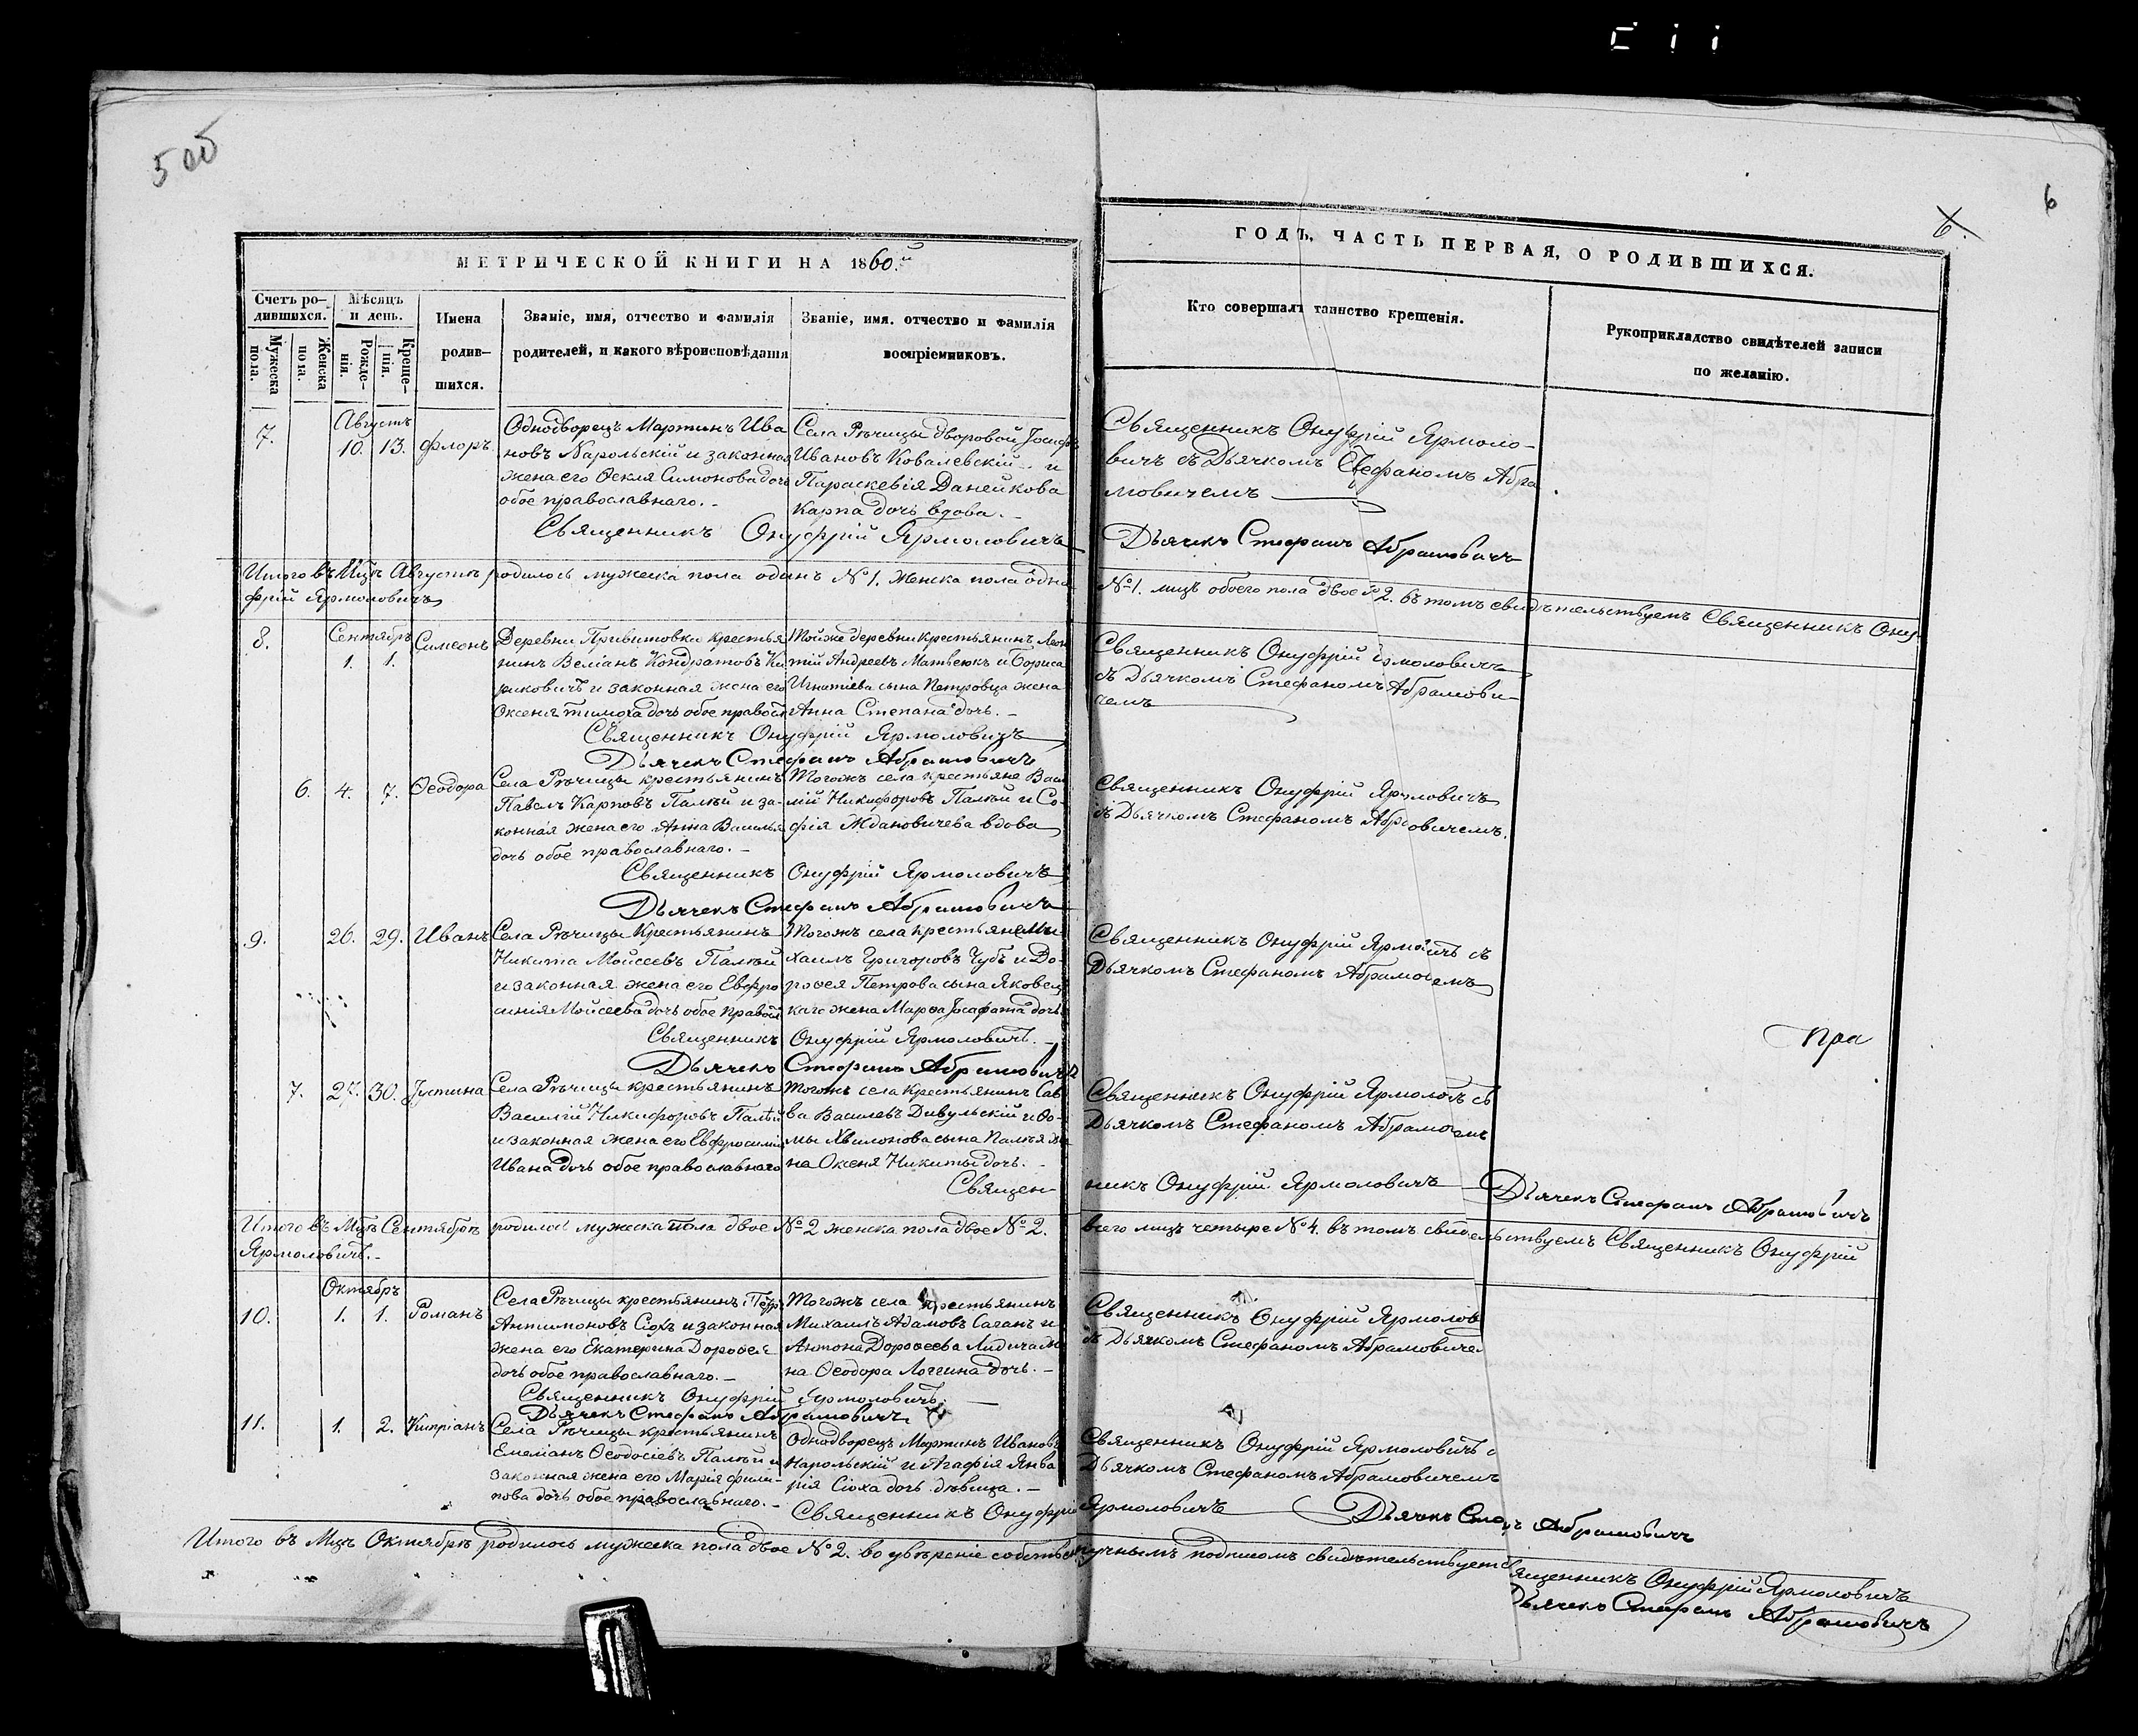 5 об
6
6.
МЕТРИЧЕСКОЙ КНИГИ НА 1860.й
ГОДЪ, ЧАСТЬ ПЕРВАЯ, О РОДИВШИХСЯ.
Счетъ ро-
дившихся.
Мужеска пола.
Женска пола.
Мѣсяцъ
и день.
Рожде-
нія.
Креще-
нія.
Имена
родив-
шихся.
Званіе, имя, отчество и фамилія
родителей, и какого вѣроисповѣданія
Званіе, имя, отчество и фамилія
воспріемниковъ.
Кто совершалъ таинство крещенія.
Рукоприкладство свидѣтелей записи
по желанію.
7.
Августъ
10. 13.
Флоръ.
Однодворецъ Мартинъ Ива
новъ Напольскій и законная
жена его Ѳекля Симонова дочь
обое православнаго. -
Села Рѣчицы дворовой Іосифъ
Ивановъ Ковалевскій и
Параскевія Данейкова
Карпа дочь вдова. -
Священникъ Онуфрій Ярмоло-
вичъ съ Дьячкомъ Стефаномъ Абра
мовичемъ
Священникъ Онуфрій Ярмоловичъ
Дьячекъ Стефанъ Абрамовичъ
Итого въ Мцѣ Августѣ родилось мужеска пола одинъ №1. женска пола одна №1. лицъ обоего пола двое №2. въ томъ свидѣтельствуемъ Священникъ Ону-
фрій Ярмоловичъ
8.
Сентябрь
1. 1.
Симеонъ
Деревни Привитовки крестья
нинъ Веліанъ Кондратовъ Ки
риковичъ и законная жена его
Оксенія Тимоха дочь обое правосл
Тойже деревни крестьянинъ Леон
тій Андреевъ Матвеюкъ и Бориса
Игнатіева сына Петровца жена
Анна Степана дочь. -
Священникъ Онуфрій Ярмоловичъ
съ Дьячкомъ Стефаномъ Абрамови-
чемъ
Священникъ Онуфрій Ярмоловичъ
Дьячекъ Стефанъ Абрамовичъ
6. 4. 7.
Ѳеодора
Села Рѣчицы крестьянинъ
Павелъ Карповъ Палѣй и за-
конная жена его Анна Василья
дочь обое православнаго. -
Тогожъ села крестьяне Васи
лій Никифоровъ Палѣй и Со-
фія Ждановичева вдова
Священникъ Онуфрій Ярмоловичъ
съ Дьячкомъ Стефаномъ Абрамовичемъ.
Священникъ Онуфрій Ярмоловичъ
Дьячекъ Стефанъ Абрамовичъ
9. 26. 29.
Иванъ
Села Рѣчицы Крестьянинъ
Никита Мойсеевъ Палѣй
и законная жена его Евфро
синія Мойсеева дочь обое правосл
Тогожъ села крестьяне Ми
хаилъ Григоровъ Чубъ и До-
роѳея Петрова сына Яковец
каго жена Марѳа Іосафата дочь
Священникъ Онуфрій Ярмоловичъ съ
Дьячкомъ Стефаномъ Абрамовичемъ
Священникъ Онуфрій Ярмоловичъ. -
Дьячекъ Стефанъ Абрамовичъ
пра
7. 27. 30.
Іустина
Села Рѣчицы крестьянинъ
Василій Никифоровъ Палѣй
и законная жена его Евфросинія
Ивана дочь обое православнаго
Тогожъ села крестьянинъ Сав
ва Василевъ Дивульскій и Ѳо-
мы Хвилонова сына Палѣя же
на Оксеня Никиты дочь. -
Священникъ Онуфрій Ярмоловичъ съ
Дьячкомъ Стефаномъ Абрамовичемъ
Священ- никъ Онуфрій Ярмоловичъ Дьячекъ Стефанъ Абрамовичъ
Итого въ Мцѣ Сентябрѣ родилось мужеска пола двое №2 женска пола двое №2. всего лицъ четыре №4. въ томъ свидѣтельствуемъ Священникъ Онуфрій
Ярмоловичъ. -
10.
Октябрь
1. 1.
Романъ
Села Рѣчицы крестьянинъ Петръ
Антимоновъ Сіохъ и законная
жена его Екатерина Дороѳея
дочь обое православнаго. -
Тогожъ села крестьянинъ
Михаилъ Адамовъ Саганъ и
Антона Дороѳеева Лидича же
на Ѳеодора Логгина дочь. -
Священникъ Онуфрій Ярмолов
съ Дьячкомъ Стефаномъ Абрамовиче
Священникъ Онуфрій Ярмоловичъ
Дьячекъ Стефанъ Абрамовичъ
11. 1. 2.
Кипріанъ
Села Рѣчицы крестьянинъ
Емеліанъ Ѳеодосіевъ Палѣй и
законная жена его Марія Фили-
пова дочь обое православнаго. -
Однодворецъ Мартинъ Ивановъ
Напольскій и Агафія Янва
рія Сіоха дочь дѣвица. -
Священникъ Онуфрій Ярмоловичъ с
Дьячкомъ Стефаномъ Абрамовичемъ
Священникъ Онуфрій Ярмоловичъ Дьячекъ Стефанъ Абрамовичъ
Итого въ Мцѣ Октябрѣ родилось мужеска пола двое №2. во увѣреніе собственноручнымъ подписомъ свидѣтельствуемъ Священникъ Онуфрій Ярмоловичъ
Дьячекъ Стефанъ Абрамовичъ